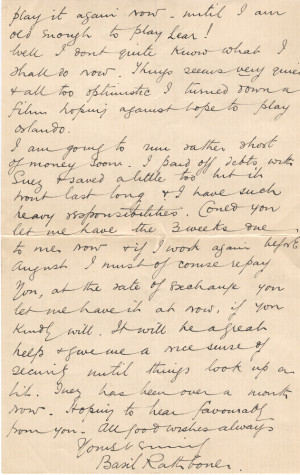 play it again now - until I am
old enough to play Lear!
Well I don't quite know what I
shall do now. Things seem very quiet
& all too optimistic I turned down a
film hoping against hope to play
Orlando.
I am going to run rather short
of money soon. I paid off debts, with
Suez & saved a little too but it
wont last long & I have such
heavy responsibilities. Could you
let me have the 3 weeks due
to me now & if I work again before
August I must of course repay
you, at the rate of exchange you
let me have it at now, if you
kindly will. It will be a great
help & give me a nice sense of
security until things look up a
bit. Suez has been over a month
now. Hoping to hear favourably
from you. All good wishes always
Yours
Basil Rathbone.